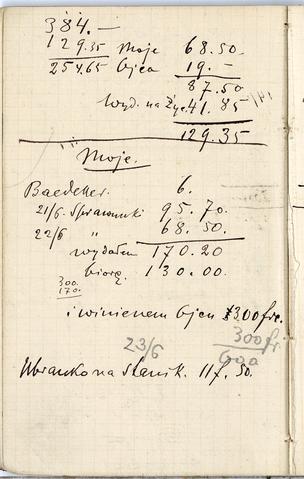 384.—
129.35 Moje 68.50.
254.65 Ojca 19.—
87.50
Wyd. na życ. 41.85
129.35
Moje.
Baedeker. 6.
21/6. Sprawunki 95.70.
22/6 " 68.50.
wydałem 170.20
biorę 130.00.
300.
170.
i winienem Ojcu 300 frc.
23/6 300 fr
600
Ubranko na Stanisł. 11f. 50.